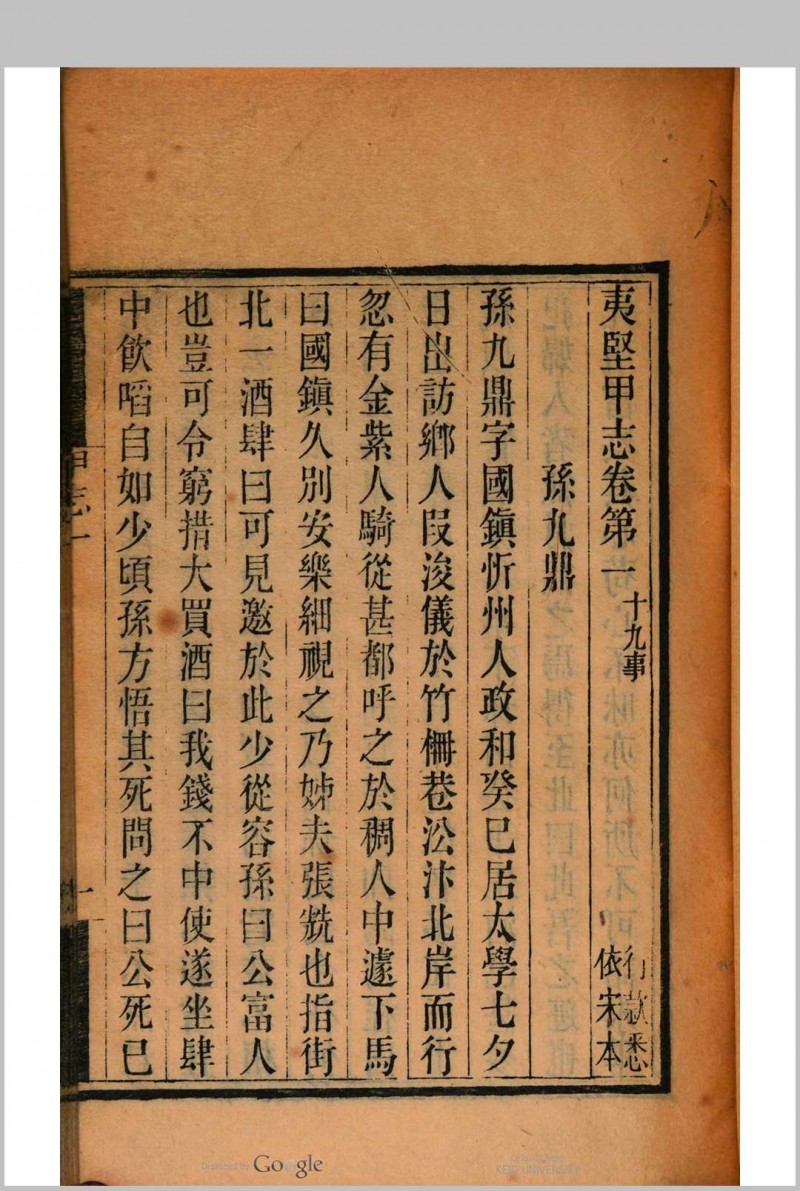 夷堅甲志卷第一 十九事 行款悉依宋本
孫九鼎
孫九鼎字國鎮忻州人政和癸巳居太學七夕
日出訪鄉人段浚儀於竹柵巷㳂汴北岸而行
忽有金紫人騎從甚都呼之於稠人中遽下馬
曰國鎮久別安樂細視之乃姊夫張兟也指街
北一酒肆曰可見邀於此少從容孫曰公富人
也豈可令窮措大買酒曰我錢不中使遂坐肆
中飲啗自如少頃孫方悟其死問之曰公死已
甲志一
一
Digitized by Google
Original from
KEIO UNIVERSITY